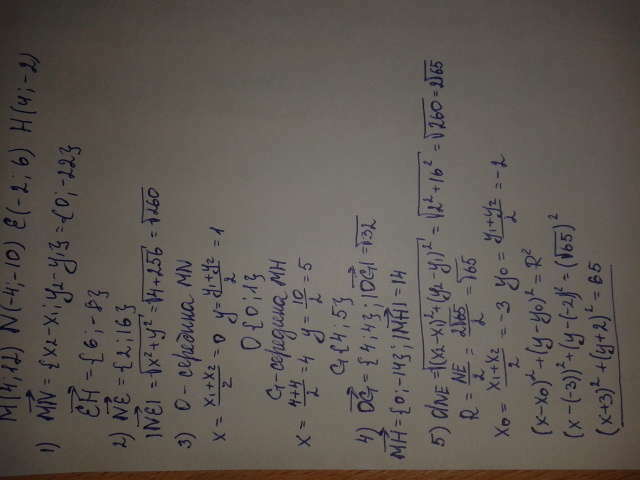 M(4;12) N(-4;-10) E(-2;6) H(4;-2)
1) MN⃗ = {x₂-x₁; y₂-y₁} = {0; -22}
EH⃗ = {6; -8}
2) NE⃗ = {2; 16}
|NE⃗| = √(x²+y²) = √(4+256) = √260
3) O - середина MN
x = (x₁+x₂)/2 = 0 y = (y₁+y₂)/2 = 1
O{0; 1}
G - середина MH
x = (4+4)/2 = 4 y = 10/2 = 5
G{4; 5}
4) OG⃗ = {4; 4}; |OG⃗| = √32
MH⃗ = {0; -14}; |MH⃗| = 14
5) dNE = √((x₂-x₁)²+(y₂-y₁)²) = √(2²+16²) = √260 = 2√65
R = NE/2 = 2√65/2 = √65
x₀ = (x₁+x₂)/2 = -3 y₀ = (y₁+y₂)/2 = -2
(x-x₀)² + (y-y₀)² = R²
(x-(-3))² + (y-(-2))² = (√65)²
(x+3)² + (y+2)² = 65